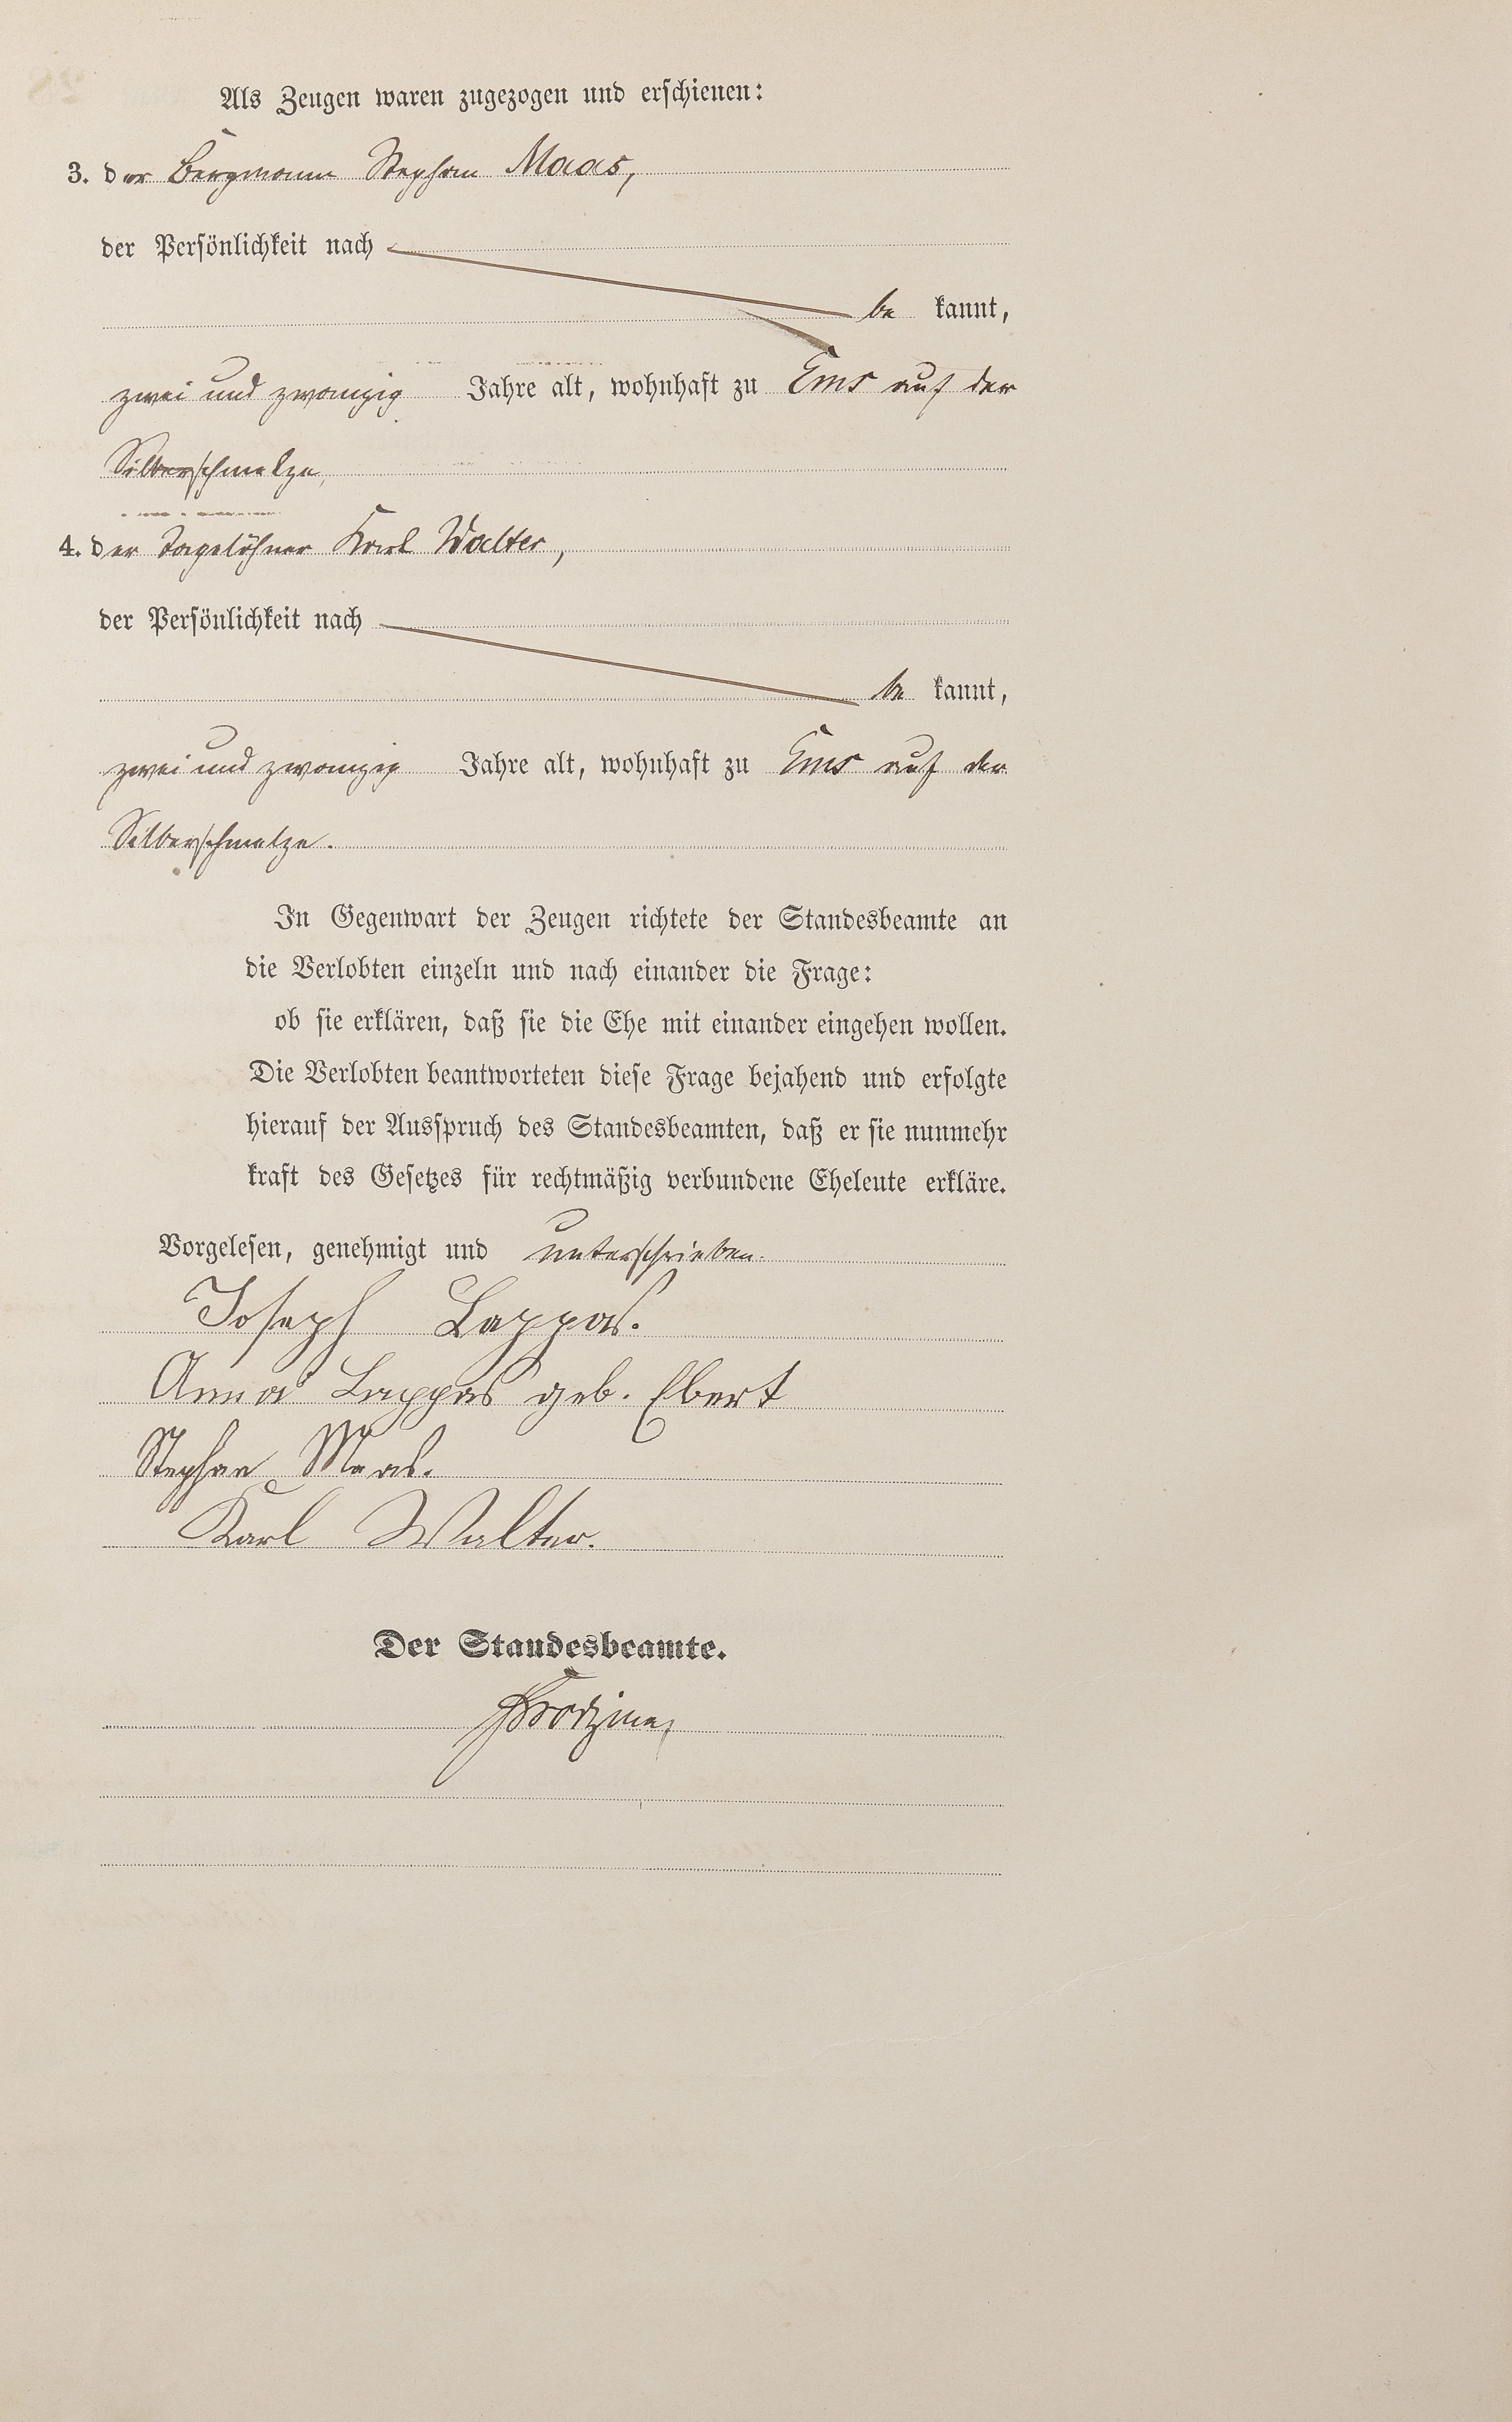 Als Zeugen waren zugezogen und erschienen:
3. der Bergmann Stephan Maas,
der Persönlichkeit nach
be kannt,
zwei und zwanzig Jahre alt, wohnhaft zu Ems auf der
Silberschmelze,
4. der Tagelöhner Karl Walter,
der Persönlichkeit nach
be kannt,
zwei und zwanzig Jahre alt, wohnhaft zu Ems auf der
Silberschmelze.
In Gegenwart der Zeugen richtete der Standesbeamte an
die Verlobten einzeln und nach einander die Frage:
ob sie erklären, daß sie die Ehe mit einander eingehen wollen.
Die Verlobten beantworteten diese Frage bejahend und erfolgte
hierauf der Ausspruch des Standesbeamten, daß er sie nunmehr
kraft des Gesetzes für rechtmäßig verbundene Eheleute erkläre.
Vorgelesen, genehmigt und unterschrieben.
Joseph Lappas.
Anna Lappas geb. Ebert
Stephan Maas.
Karl Walter.
Der Standesbeamte.